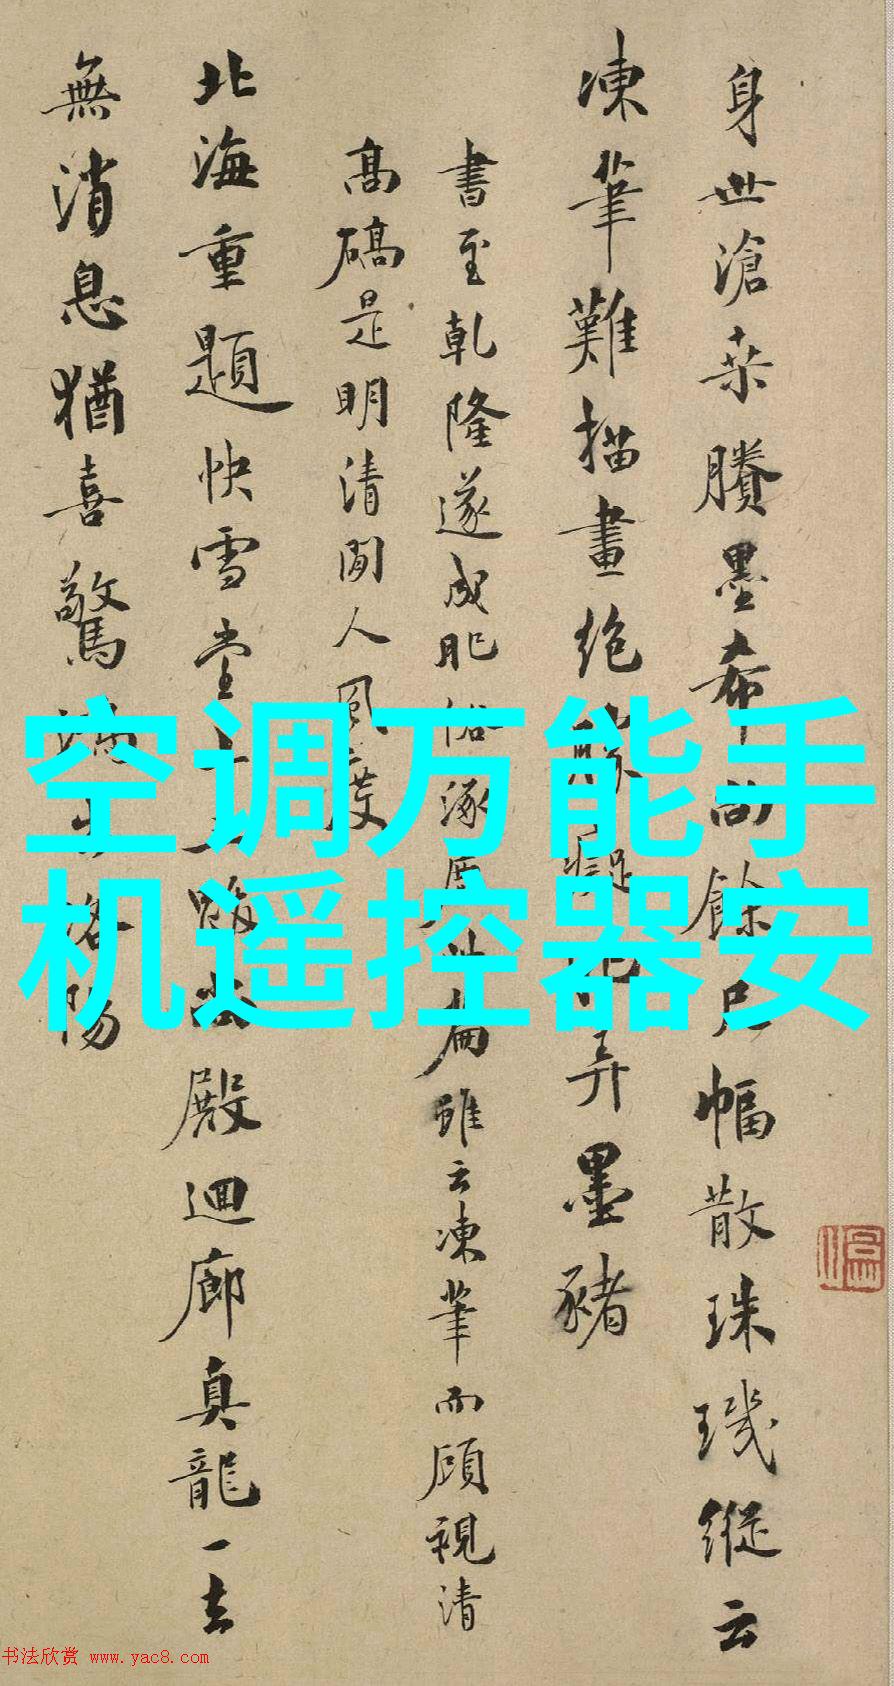 身世滄桑賸墨希尚餘尺幅散珠璣縱云
凍筆難描畫絶弄墨豬
書至乾隆遂成肥俗涿届世扁雖云凍筆而顧視清
高碻是明清間人風度
北海重題快雪堂殿迴廊真龍一去
無消息猶喜驚洛陽
空调万能手
机遥控器安
书法欣赏 www.yac8.com